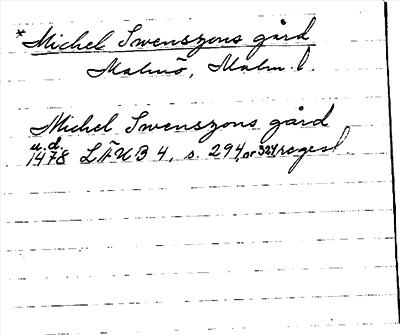 * Michel Swenszons gård
Malmö, Malm. l.
Michel Swenszons gård
u.d.
1478 LÄUB 4, s. 294, nr 324 regest.